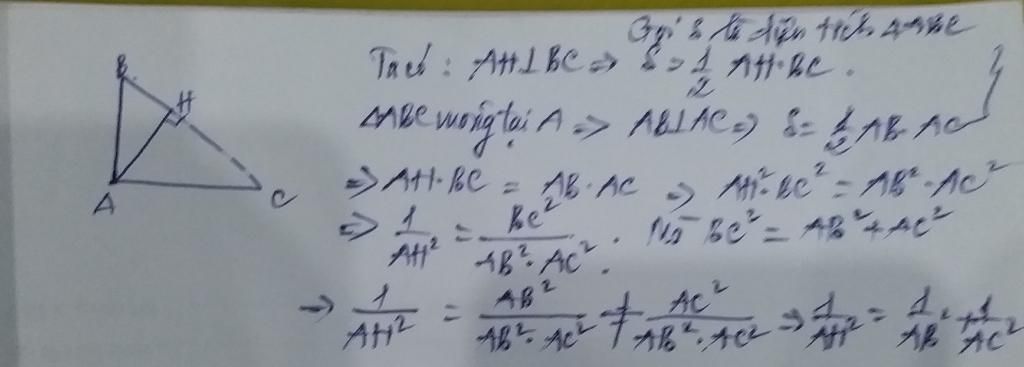 Gọi S là diện tích ΔABC
Ta có : AH⊥BC => S = 1/2 AH·BC.
ΔABC vuông tại A => AB⊥AC => S = 1/2 AB·AC
=> AH·BC = AB·AC => AH²·BC² = AB²·AC²
=> 1/AH² = BC²/(AB²·AC²). Mà BC² = AB² + AC²
=> 1/AH² = AB²/(AB²·AC²) + AC²/(AB²·AC²) => 1/AH² = 1/AB² + 1/AC²
B
H
A
C